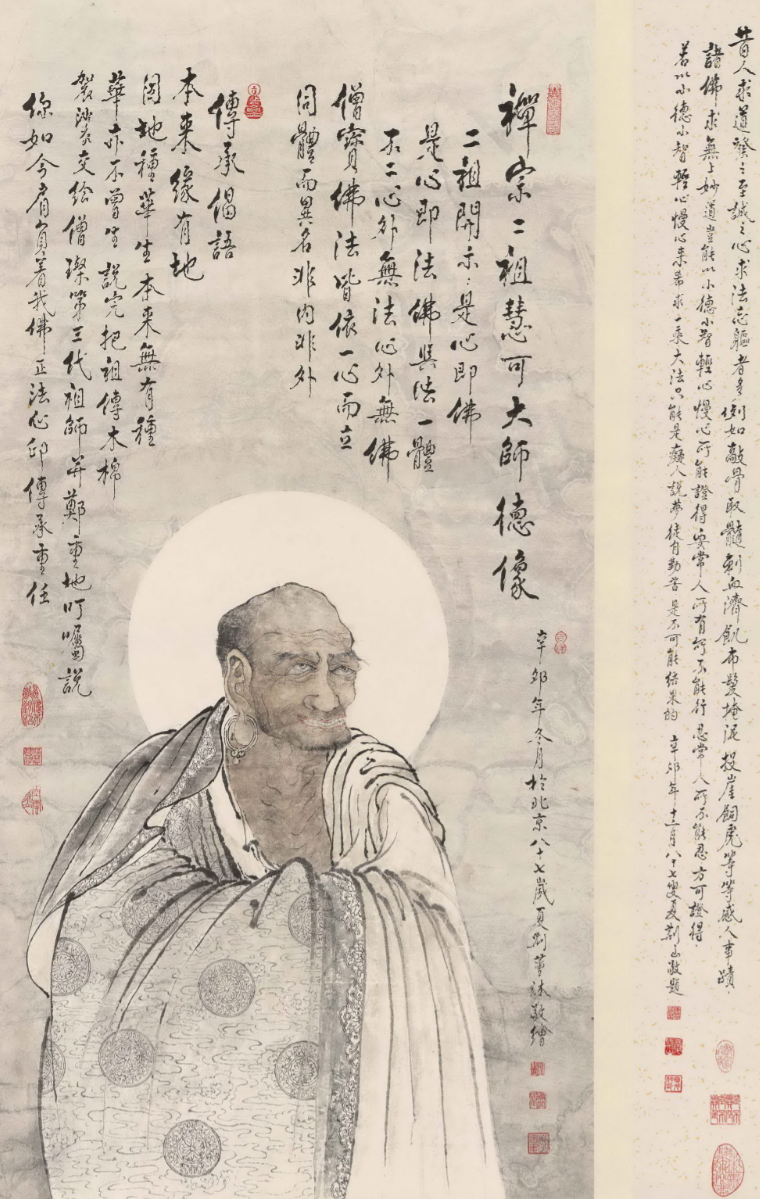 昔人求道發之至誠之心求法忘軀者多例如敲骨取髓刺血濟飢布髮掩泥投崖飼虎等等感人事蹟
諸佛求無上妙道豈能以小德小智輕心慢心所能證得要常人所有能不能行忍常人所不能忍方可證得
若以小德小智輕心慢心來希求一乘大法只能是癡人說夢徒自勤苦是不可能結果的 辛卯年十二月八十七叟夏荊山敬題
禪宗二祖慧可大師德像
二祖開示：是心即佛
是心即法佛與法一體
不二心外無法心外無佛
僧寶佛法皆依一心而立
同體而異名非內非外
傳承偈語
本來緣有地
因地種華生本來無有種
華亦不曾生說完把祖傳木棉
袈裟衣交给僧璨第三代祖師并鄭重地叮囑說
你如今肩負着我佛正法心印傳承重任
辛卯年冬月於北京八十七歲夏荊山敬繪